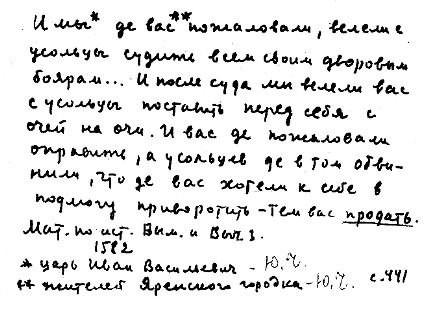 И мы* де вас** пожаловали, велели с
усольцы судити всем своим дворовым
боярам... И после суда мы велели вас
с усольцы поставить перед себя с
очей на очи. И вас де пожаловали
оправити, а усольцев де в том обви-
нили, что де вас хотели к себе в
подмогу приворотить – тем вас продать.
Мат. по ист. Вым. и Выч з.
1582
* царь Иван Васильевич – Ю.Ч.
** жителей Яренского городка – Ю.Ч. с.441